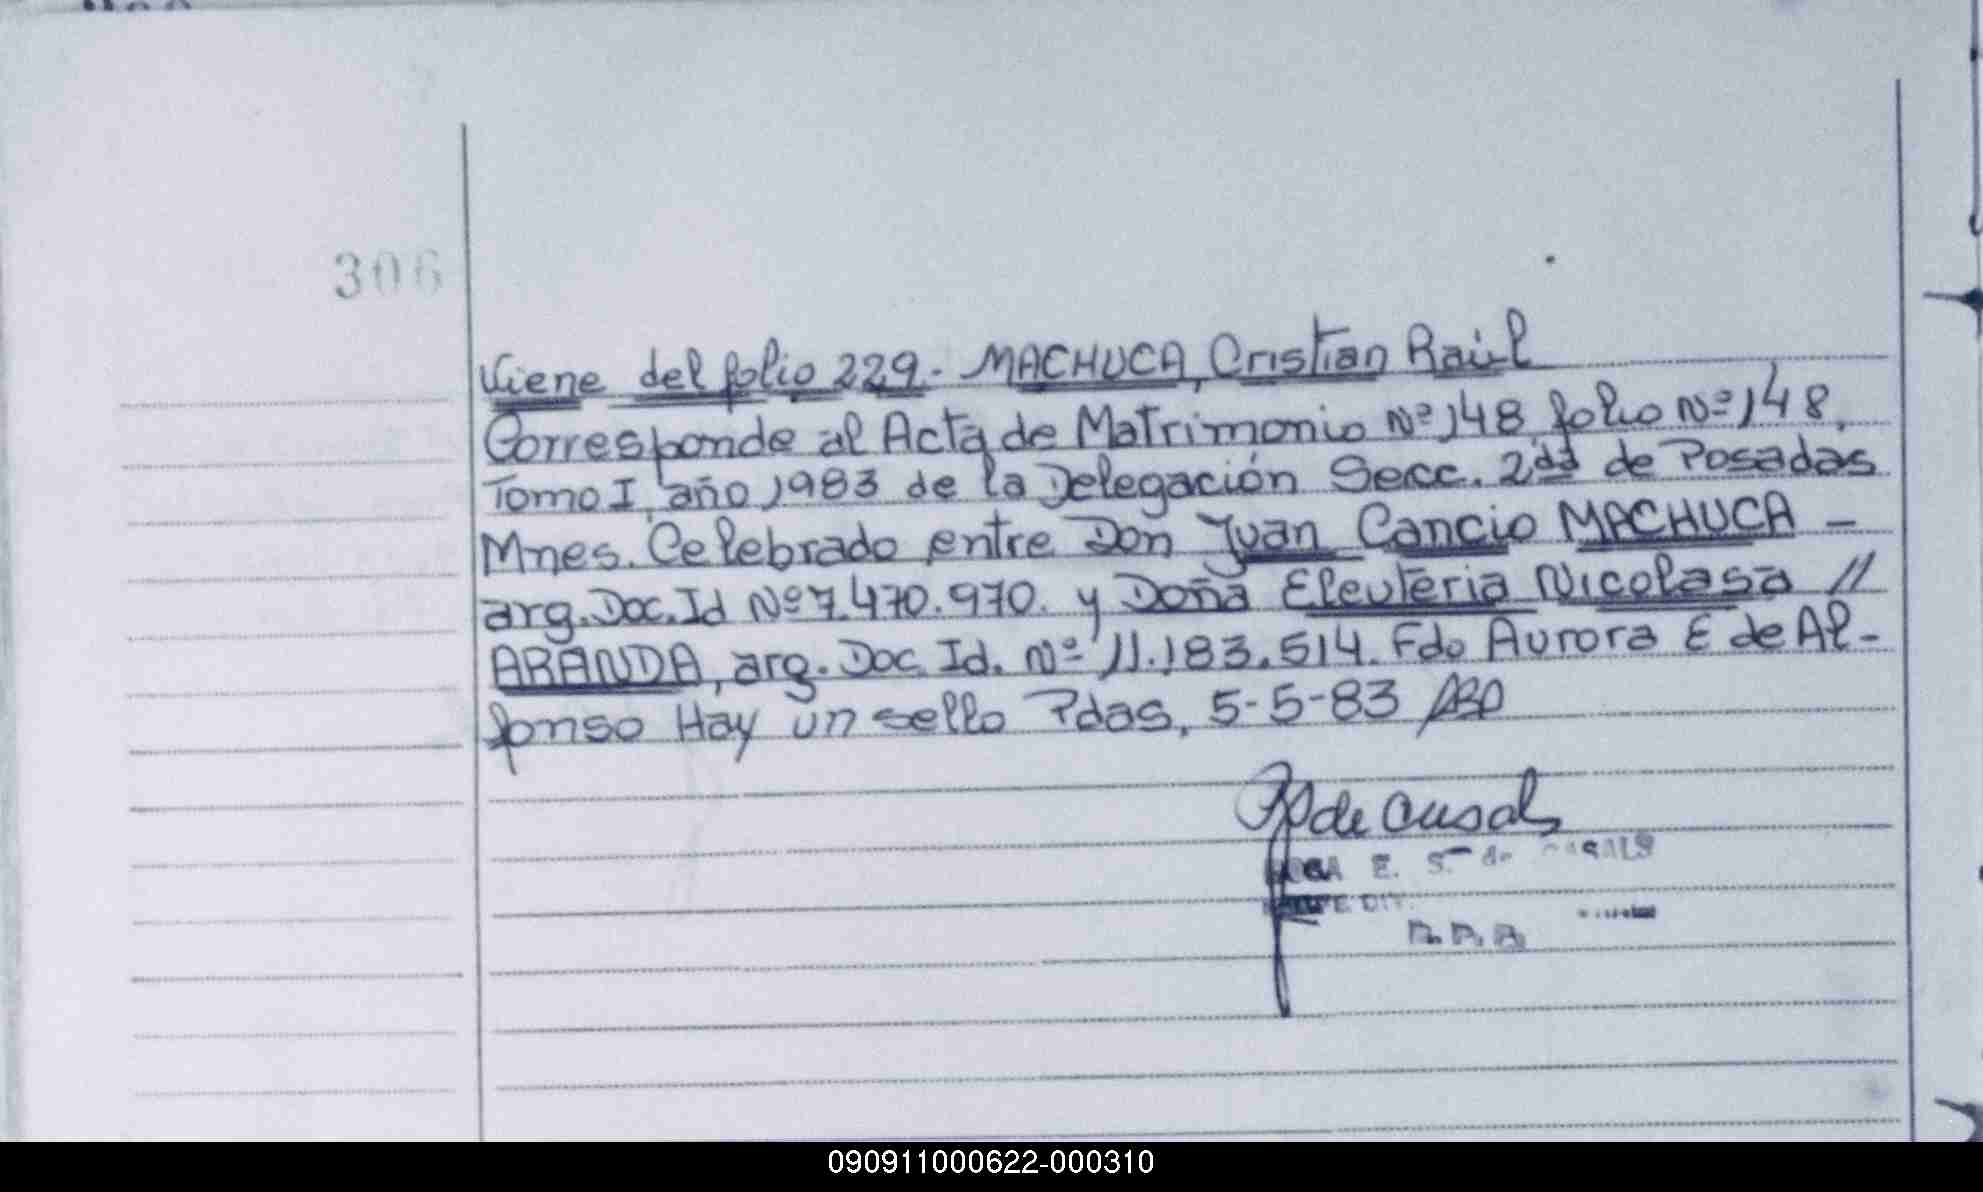 306
Viene del folio 229. MACHUCA, Cristian Raúl
Corresponde al Acta de Matrimonio Nº 148 folio Nº 148,
Tomo I, año 1983 de la Delegación Secc. 2dd de Posadas
Mnes. Celebrado entre Don Juan Cancio MACHUCA -
arg. Doc. Id Nº 7.470.970. y Doña Eleuteria Nicolasa //
ARANDA, arg. Doc. Id. Nº 11.183.514. Fdo Aurora E de Al-
fonso Hay un sello Pdas, 5-5-83
de Casals
E. S. de CASALS
090911000622-000310